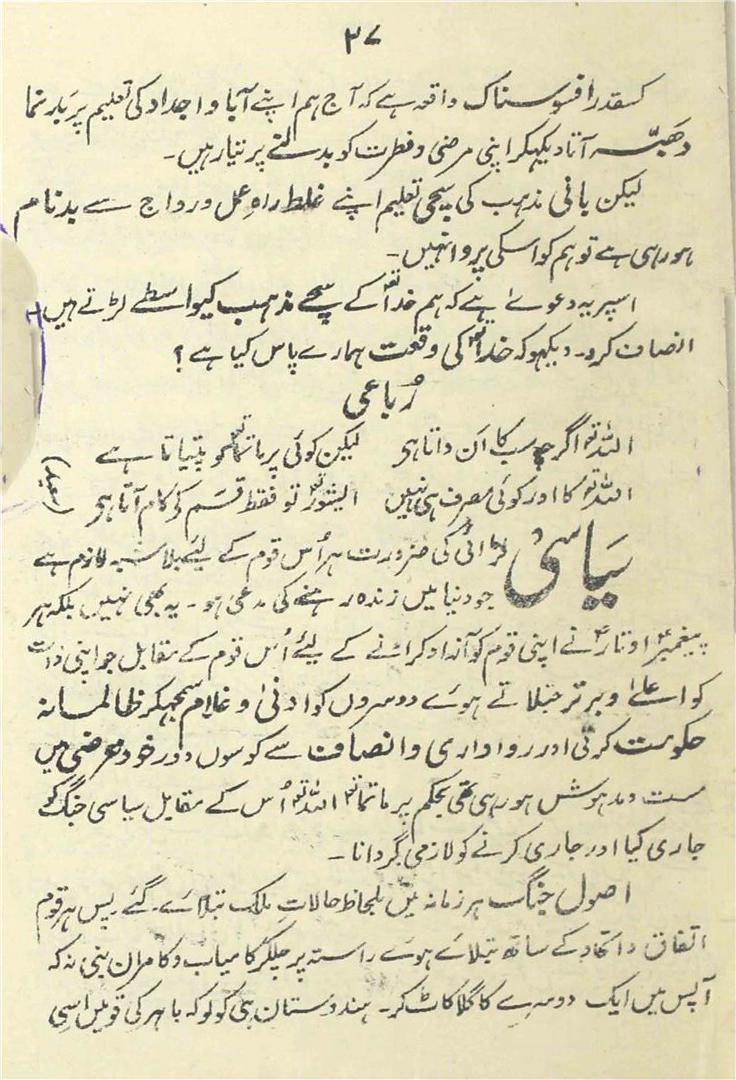 ۳۷
کسقدر افسوسناک واقعہ ہے کہ آج ہم اپنے آبا و اجداد کی تعلیم پر بدنما
دھبّہ آتا دیکھکر اپنی مرضی و فطرت کو بدلنے پر تیار ہیں۔
لیکن بانی مذہب کی سچی تعلیم اپنے غلط راہِ عمل و رواج سے بدنام
ہو رہی ہے تو ہم کو اسکی پروا نہیں۔
اسپر یہ دعوےٰ ہے کہ ہم خدا کے سچے مذہب کیواسطے لڑتے ہیں۔
انصاف کرو۔ دیکھو کہ خدا کی وقعت ہمارے پاس کیا ہے ؟
رُباعی
اللہ اگرچہ سب کا اَن داتا ہی لیکن کوئی پرماتما کو پتیاتا ہے
اللہ کا اور کوئی مصرف ہی نہیں ایشور تو فقط قسم کی کام آتا ہی
(سعید)
سیاسی لڑائی کی ضرورت ہر اُس قوم کے لیئے بلاشبہ لازم ہے
جو دنیا میں زندہ رہنے کی مدعی ہو۔ یہ بھی نہیں بلکہ ہر
پیغمبر اوتار نے اپنی قوم کو آزاد کرانے کے لیئے اُس قوم کے مقابل جو اپنی ذات
کو اعلےٰ و برتر جتلاتے ہوے دوسروں کو ادنیٰ و غلام سمجھکر ظالمانہ
حکومت کرتی اور رواداری و انصاف سے کوسوں دور خود غرضی میں
مست و مدہوش ہو رہی تھی بحکم پرماتما اللہ اُس کے مقابل سیاسی جنگ کو
جاری کیا اور جاری کرنے کو لازمی گردانا۔
اصول جنگ ہر زمانہ میں بلحاظ حالاتِ ملک بتلائے گئے پس ہر قوم
اتفاق و اتحاد کے ساتھ بتلائے ہوے راستہ پر چلکر کامیاب و کامران بنی نہ کہ
آپس میں ایک دوسرے کا گلا کاٹ کر۔ ہندوستان ہی کو لو کہ باہر کی قومیں اسی